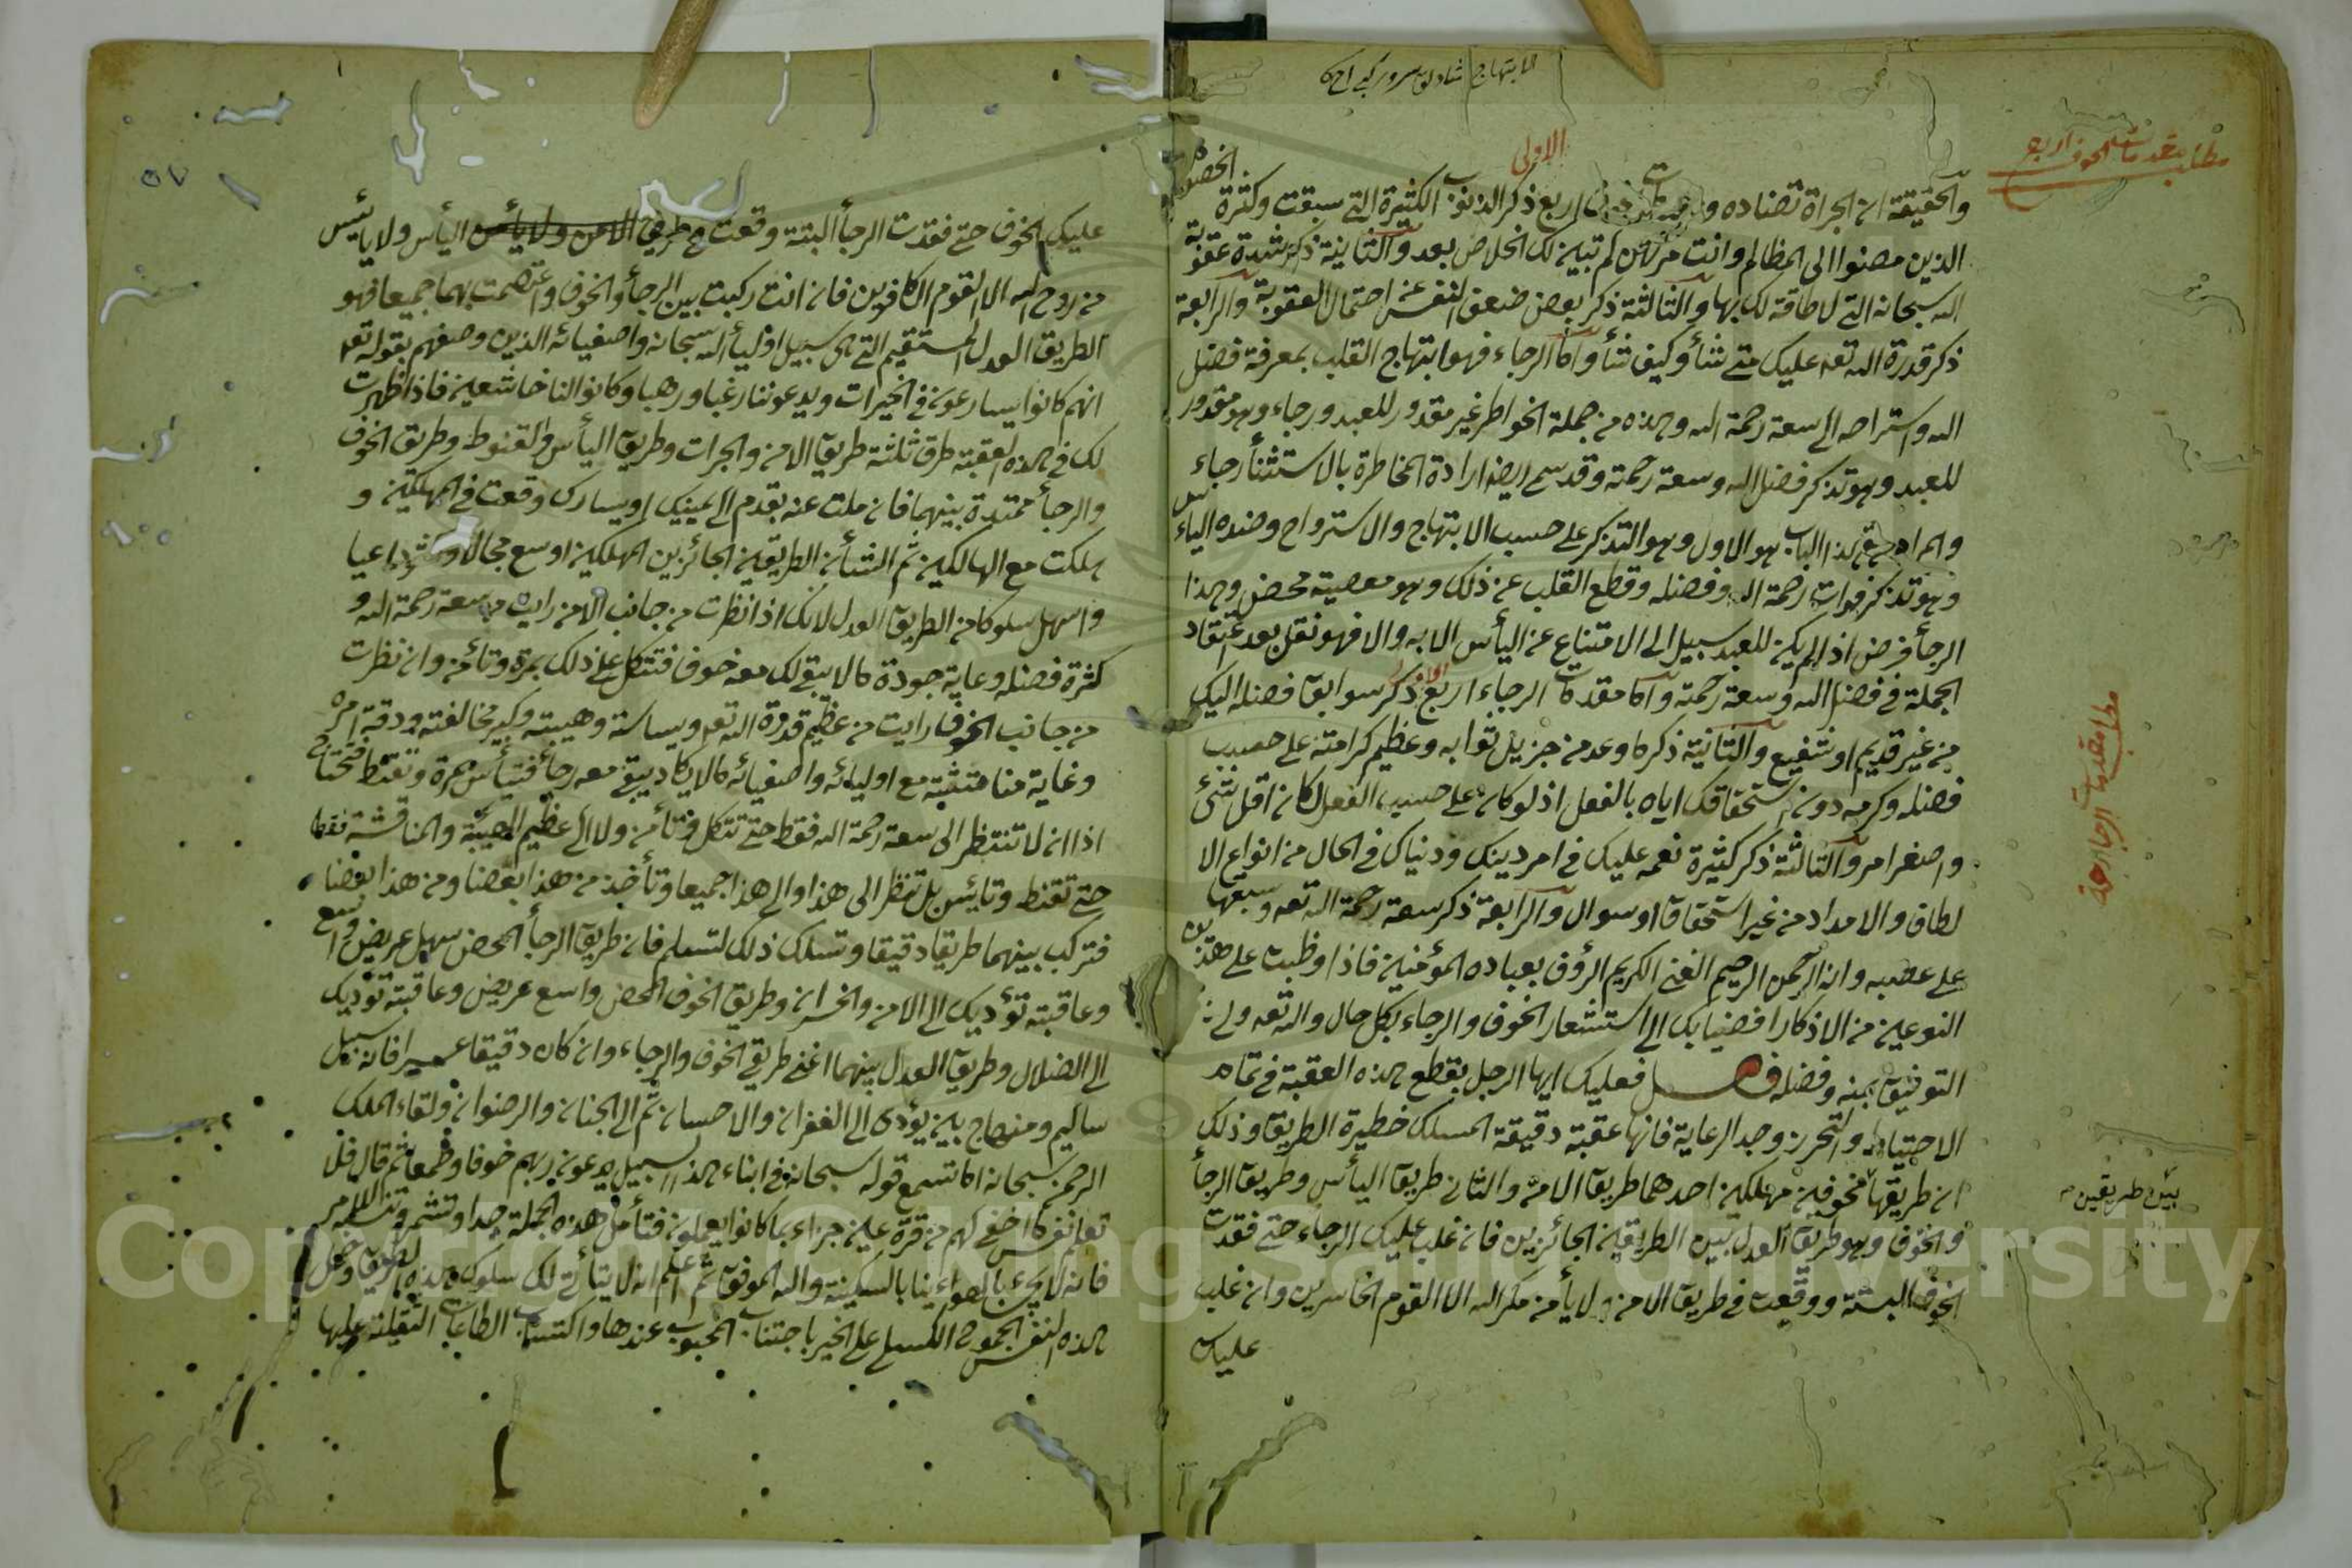 الابتهاج شادلق سرور كبي احكا
مطلب مقدمات الخوف اربع
الاولى
والحقيقة ان الجراة تضاده و مقدمات الخوف اربع ذكر الذنوب الكثيرة التي سبقت وكثرة الخصوم
الذين مضوا الى المظالم وانت مرتهن لم تبين لك الخلاص بعد والثانية ذكر شدة عقوبة
الله سبحانه التي لا طاقة لك بها والثالثة ذكر بعض ضعف النفس عن احتمال العقوبة والرابعة
ذكر قدرة الله تعه عليك متى شأ وكيف شأ واما الرجاء فهو ابتهاج القلب بمعرفة فضل
الله واستراحه الى سعة رحمة الله وهذه من جملة الخواطر غير مقدور للعبد ورجاء وهو مقدور
للعبد وهو تذكر فضل الله وسعة رحمته وقد سمى ايضا ارادة المخاطرة بالاستثنأ رجاء
والمراد من هذا الباب هو الاول وهو التذكر على حسب الابتهاج والاسترواح وضده الياءس
وهو تذكر فوات رحمة الله وفضله وقطع القلب عن ذلك وهو معصية محض وهذا
الرجأ فرض اذا لم يكن للعبد سبيل الى الامتناع عن اليأس الا به والا فهو نفل بعد اعتقاد
الجملة فى فضل الله وسعة رحمته واما مقدمات الرجاء اربع ذكر سوابق فضله اليك
من غير قديم او شفيع والثانية ذكر ما وعد من جزيل ثوابه وعظيم كرامته على حسب
فضله وكرمه دون استحقاقك اياه بالفعل اذ لو كان على حسب الفعل لكان اقل شئ
واصغر امر والثالثة ذكر كثيرة نعمه عليك فى امر دينك ودنياك فى الحال من انواع الا
لطاف والامداد من غير استحقاق او سوال والرابعة ذكر سعة رحمة الله تعه وسبقها
على غضبه وانه الرحمن الرحيم الغنى الكريم الرؤف بعباده المؤمنين فاذا وظبت على هذين
النوعين من الاذكار افضيا بك الى استشعار الخوف والرجاء بكل حال والله تعه ولى
التوفيق بمنه وفضله فصل فعليك ايها الرجل بقطع هذه العقبة فى تمام
الاحتياط والتحرز وجد الرعاية فانها عقبة دقيقة المسلك خطيرة الطريق وذلك
ان طريقها مخوفين مهلكين احدهما طريق الامن والثانى طريق اليأس وطريق الرجأ
والخوف وهو طريق العدل بين الطريقين الجائزين فان غلب عليك الرجاء حتى فقدت
الخوف البتة ووقعت فى طريق الامن ولا يأمن مكر الله الا القوم الخاسرين وان غلب
عليك
مطلب مقدمات الرجا اربعة
بين طريقين
٥٧
عليك الخوف حتى فقدت الرجأ البتة وقعت فى طريق الامن ولا يأمن اليأس ولا يايئس
من روح الله الا القوم الكافرين فان انت ركبت بين الرجأ والخوف واعتصمت بهما جميعا فهو
الطريق العدل المستقيم التى هى سبيل اوليأ الله سبحانه واصفيائه الذين وصفهم بقوله تعه
انهم كانوا يسارعون فى الخيرات ويدعوننا رغبا ورهبا وكانوا لنا خاشعين فاذا ظهرت
لك فى هذه العقبة طرق ثلثة طريق الامن والجرات وطريق اليأس والقنوط وطريق الخوف
والرجأ ممتدة بينهما فان ملت عنه بقدم الى يمينك او يسارك وقعت فى المهلكين و
هلكت مع الهالكين ثم الشأن الطريقين الجائزين المهلكين اوسع مجالا واكثر داعيا
واسهل سلوكا من الطريق العدل لانك اذا نظرت من جانب الامن رايت من سعة رحمة الله و
كثرة فضله وغاية جودة ما لا يبقى لك معه خوف فتتكل على ذلك بمرة وتأمن وان نظرت
من جانب الخوف رايت من عظيم قدرة الله تعه وسياسة وهيبته وكبر مخالفته ودقة امره
وغاية مناقشته مع اوليائه واصفيائه ما لا يكاد يبقى معه رجأ فتيأس بمرة وتقنط فتحتاج
اذا ان لا تنتظر الى سعة رحمة الله فقط حتى تتكل فتأمن ولا الى عظيم الهيبة والمناقشة فقط
حتى تقنط وتايئس بل تنظر الى هذا والى هذا جميعا وتأخذ من هذا بعضا ومن هذا بعضا
فتركب بينهما طريقا دقيقا وتسلك ذلك لتسلم فان طريق الرجأ المحض سهل عريض واسع
وعاقبته تؤديك الى الامن والخسران وطريق الخوف المحض واسع عريض وعاقبته تؤديك
الى الضلال وطريق العدل بينهما اعنى طريقى الخوف والرجاء وان كان دقيقا عسيرا فانه سبيل
ساليم ومنهاج بين يؤدى الى الغفران والاحسان ثم الى الجنان والرضوان ولقاء الملك
الرحمن سبحانه اما تسمع قوله سبحانه فى ابناء هذا السبيل يدعون ربهم خوفا وطمعا ثم قال فلا
تعلم نفس ما اخفى لهم من قرة عين جزاء بما كانوا يعملون فتأمل هذه الجملة جدا وتشمر وتنبه للامر
فانه لا يجئ بالهوينا بالسكينة والله الموفق ثم اعلم انه لا يتأتى لك سلوك هذه الطريق وحمل
هذه النفس الجموح الكسلى على الخير باجتناب المحبوب عندها واكتساب الطاعات الثقيلة عليها